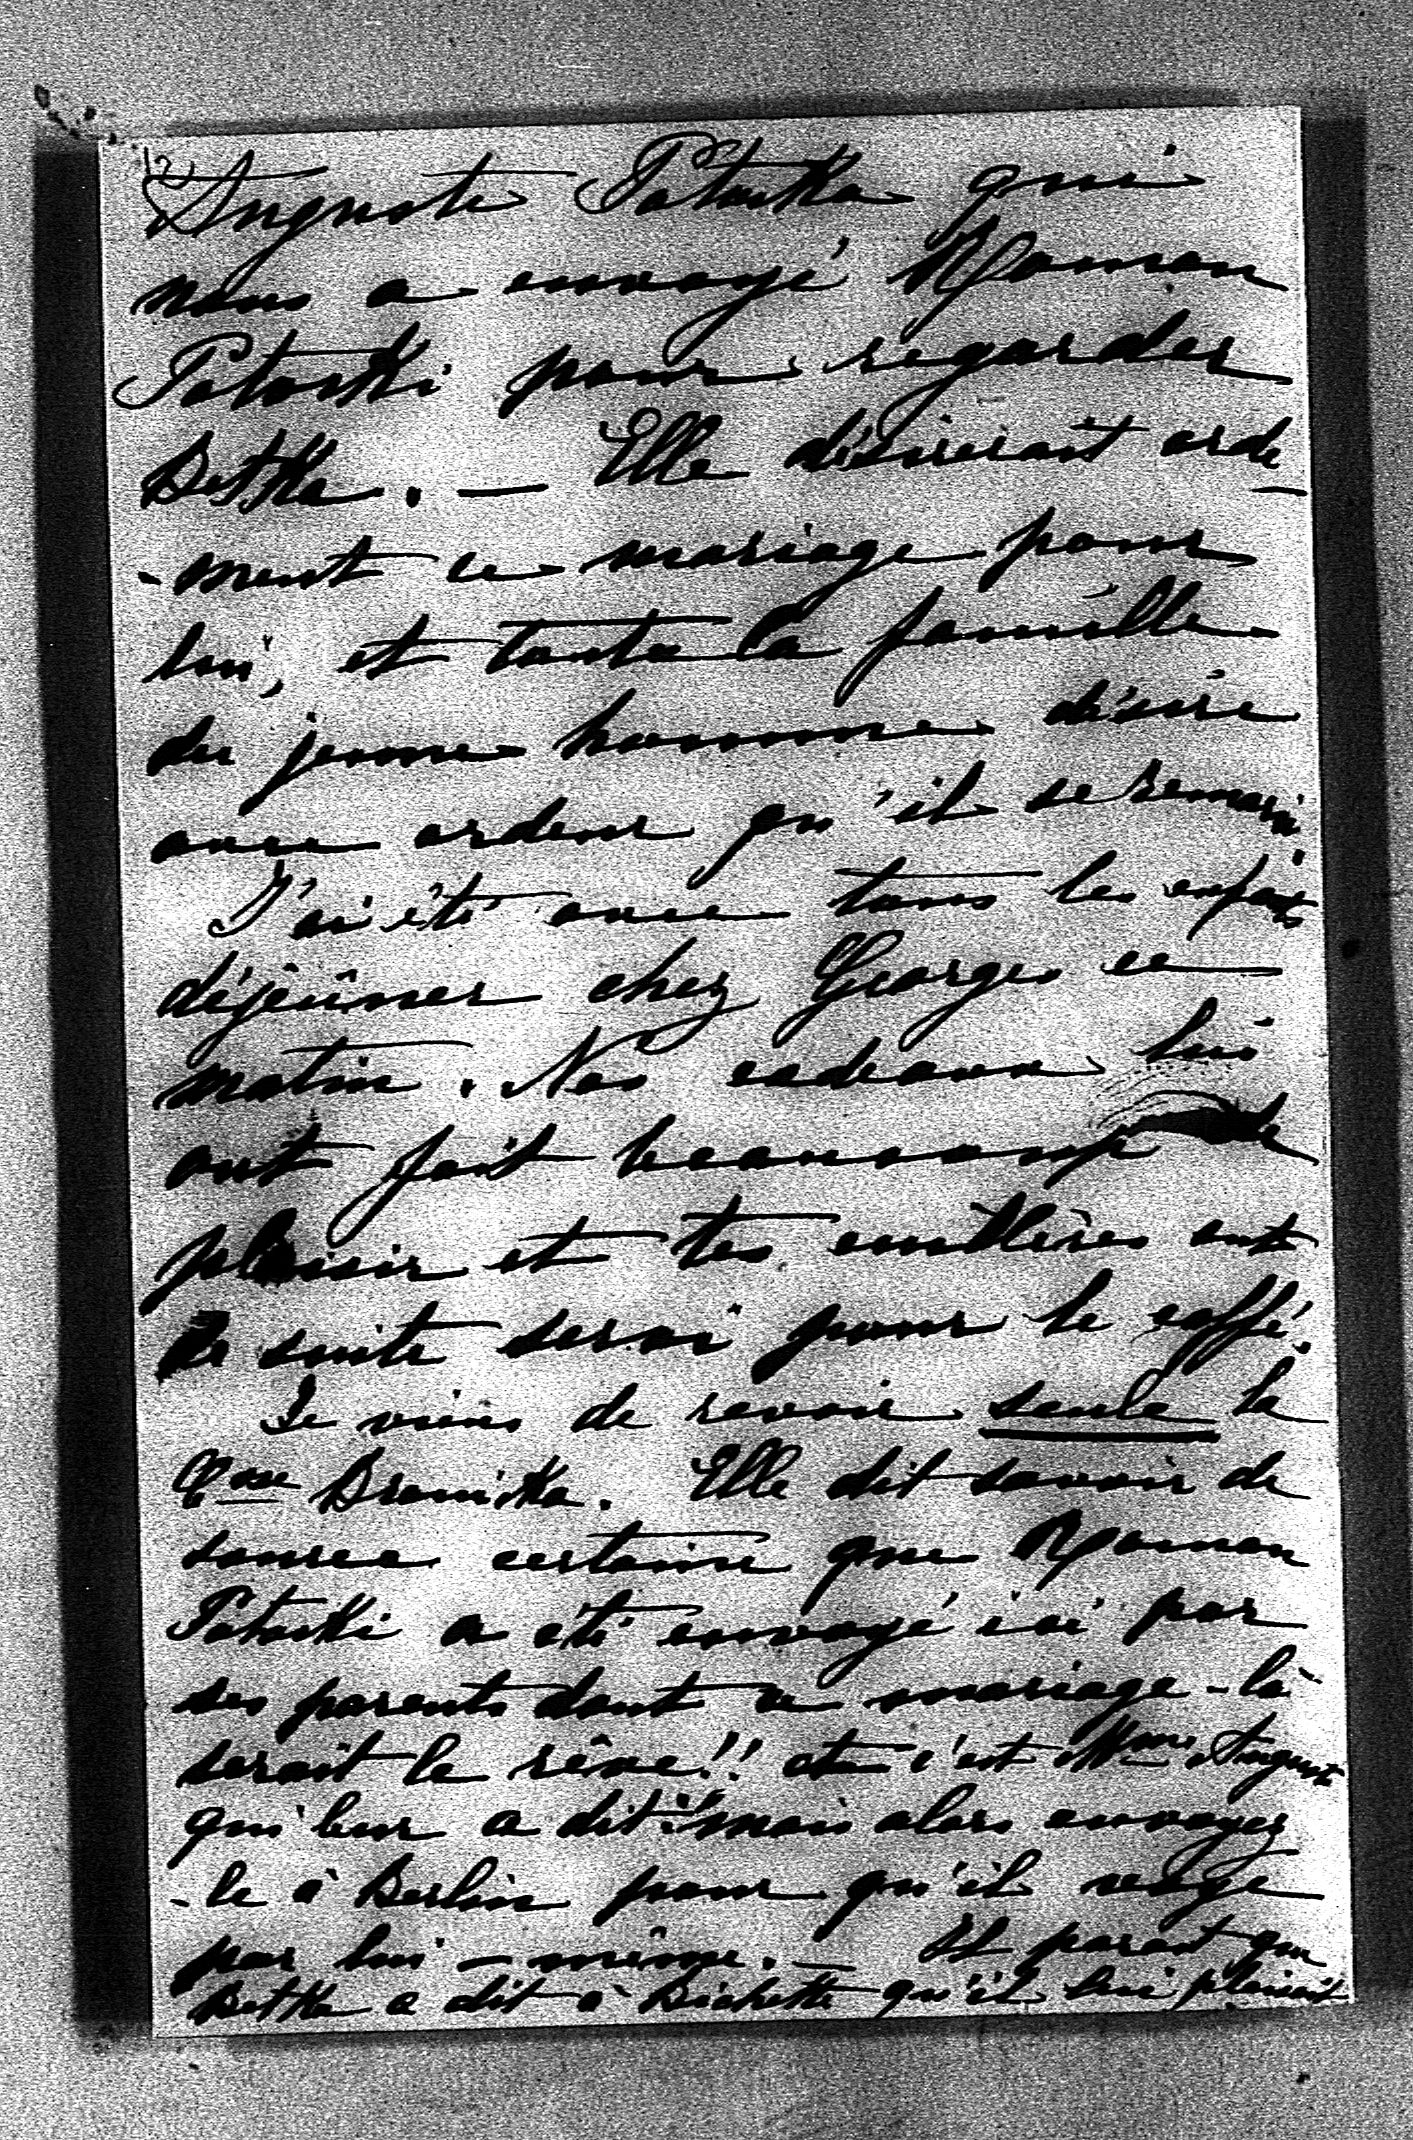 12)
Auguste Potocka qui
nous a envoyé Roman
Potocki pour regarder
Betka. — Elle désirerait arde
-ment ce mariage pour
lui, et toute la famille
du jeune homme désire
avec ardeur qu'il se remarie.
J'ai été avec tous les enfants
déjeûner chez Georges ce
matin. Nos cadeaux lui
ont fait beaucoup de
plaisir et tes cuillères ont
de suite servi pour le caffé.
Je viens de revoir seule la
Csse Branicka. Elle dit savoir de
source certaine que Roman
Potocki a été envoyé ici par
ses parents dont ce mariage-là
serait le rêve!! et c'est Mme Auguste
qui leur a dit: "mais alors envoyez
-le à Berlin pour qu'il voye
par lui-même. — Il parait que
Betka a dit à Bichette qu'il lui plaisait